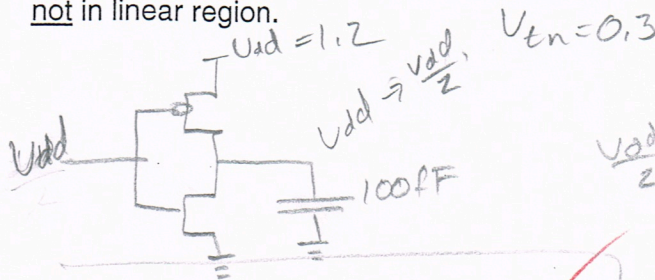 not in linear region.
Vdd = 1.2
Vtn = 0.3
Vdd → Vdd/2
Vdd
Vdd/2
100fF